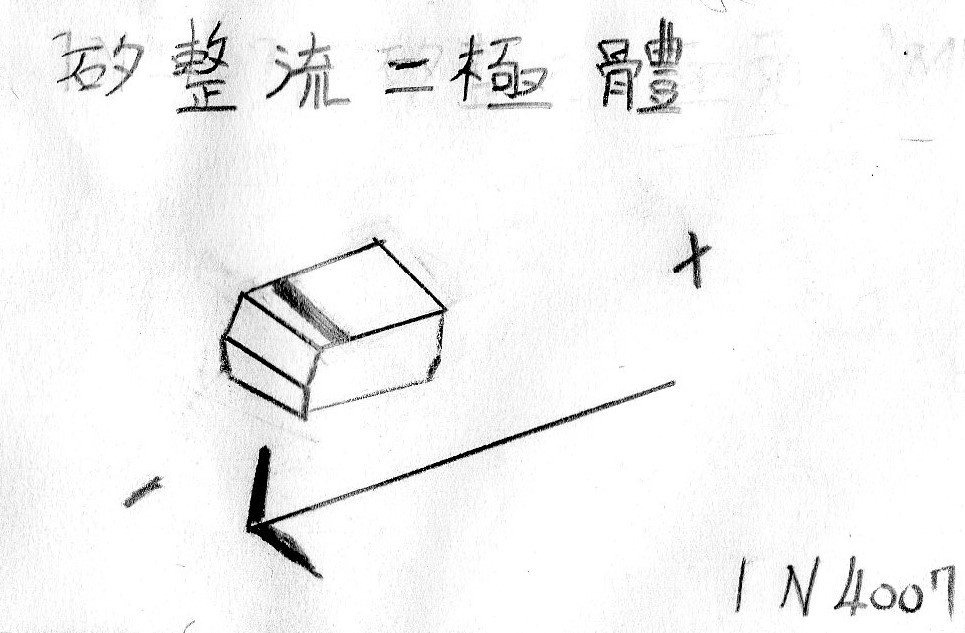 矽整流二極體
+
-
1N4007